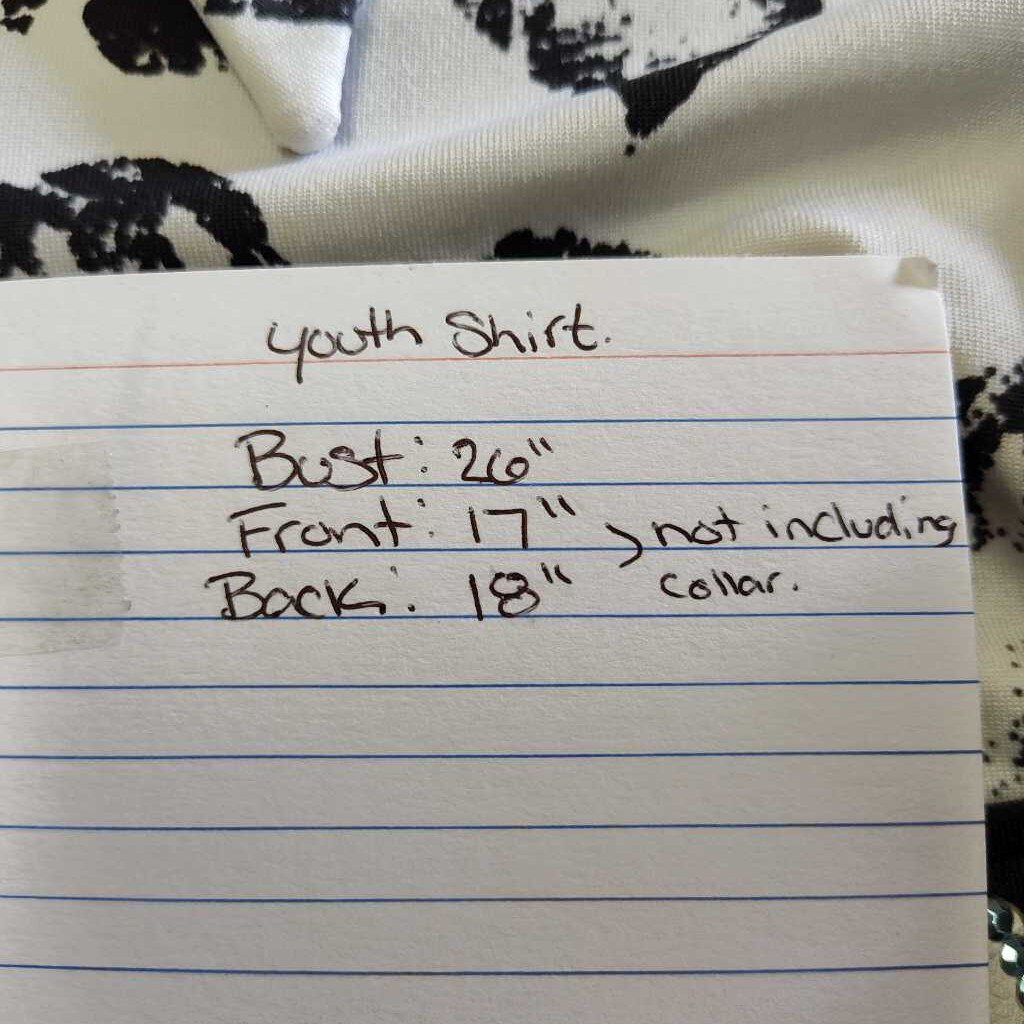 youth Shirt.
Bust: 26"
Front: 17"
Back: 18"
not including
collar.